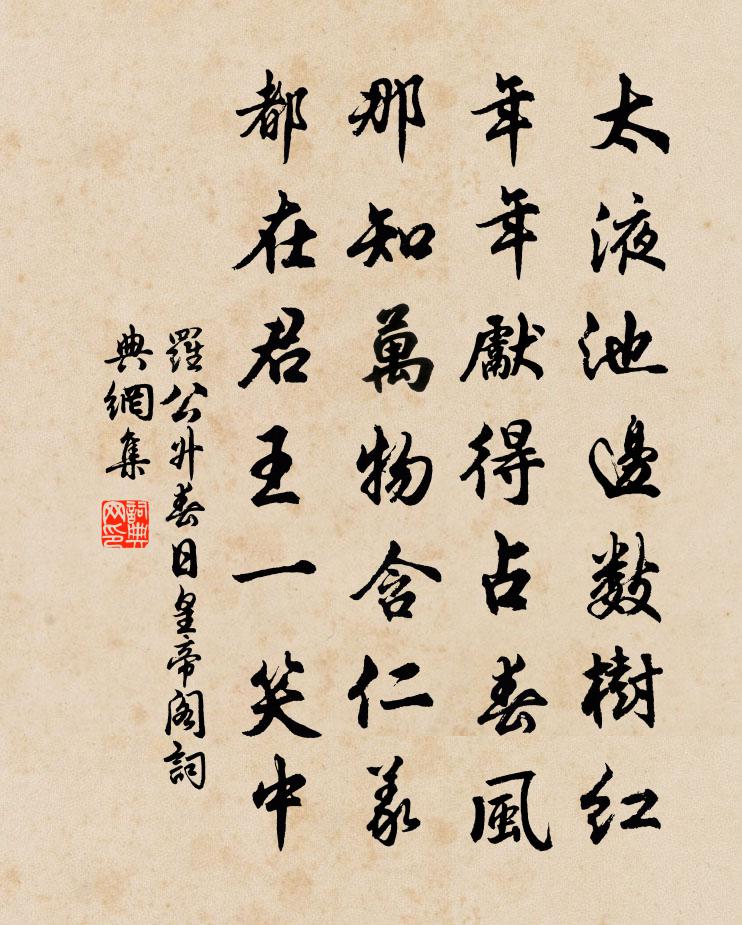 太液池邊數樹紅
年年獻得占春風
那知萬物含仁義
都在君王一笑中
羅公升春日皇帝閣詞
典網集
詞典網印